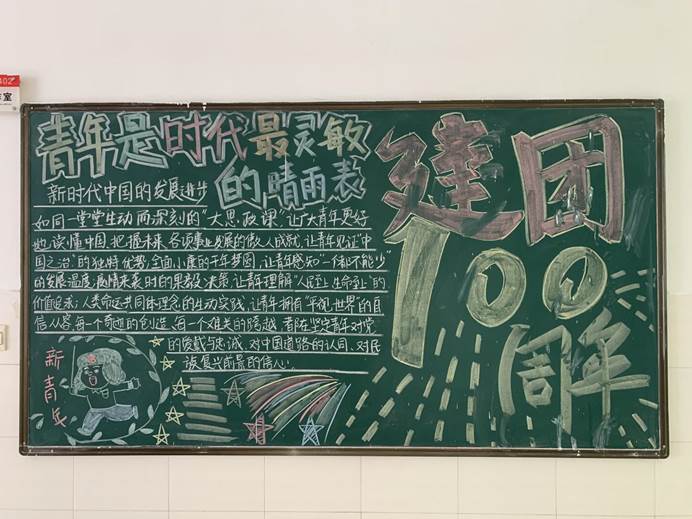 402
室
青年是时代最灵敏
的晴雨表
建团
100
周年
新时代中国的发展进步
如同一堂堂生动而深刻的“大思政课”让广大青年更好
地读懂中国、把握未来。各项事业发展的傲人成就,让青年见证“中
国之治”的独特优势;全面小康的千年梦圆,让青年感知“一个都不能少”
的发展温度;疫情来袭时的果敢决策,让青年理解“人民至上、生命至上”的
价值追求;人类命运共同体理念的生动实践,让青年拥有“平视”世界的自
信从容。每一个奇迹的创造、每一个难关的跨越,都在坚定青年对党
的爱戴与忠诚、对中国道路的认同、对民
族复兴前景的信心。
新青年